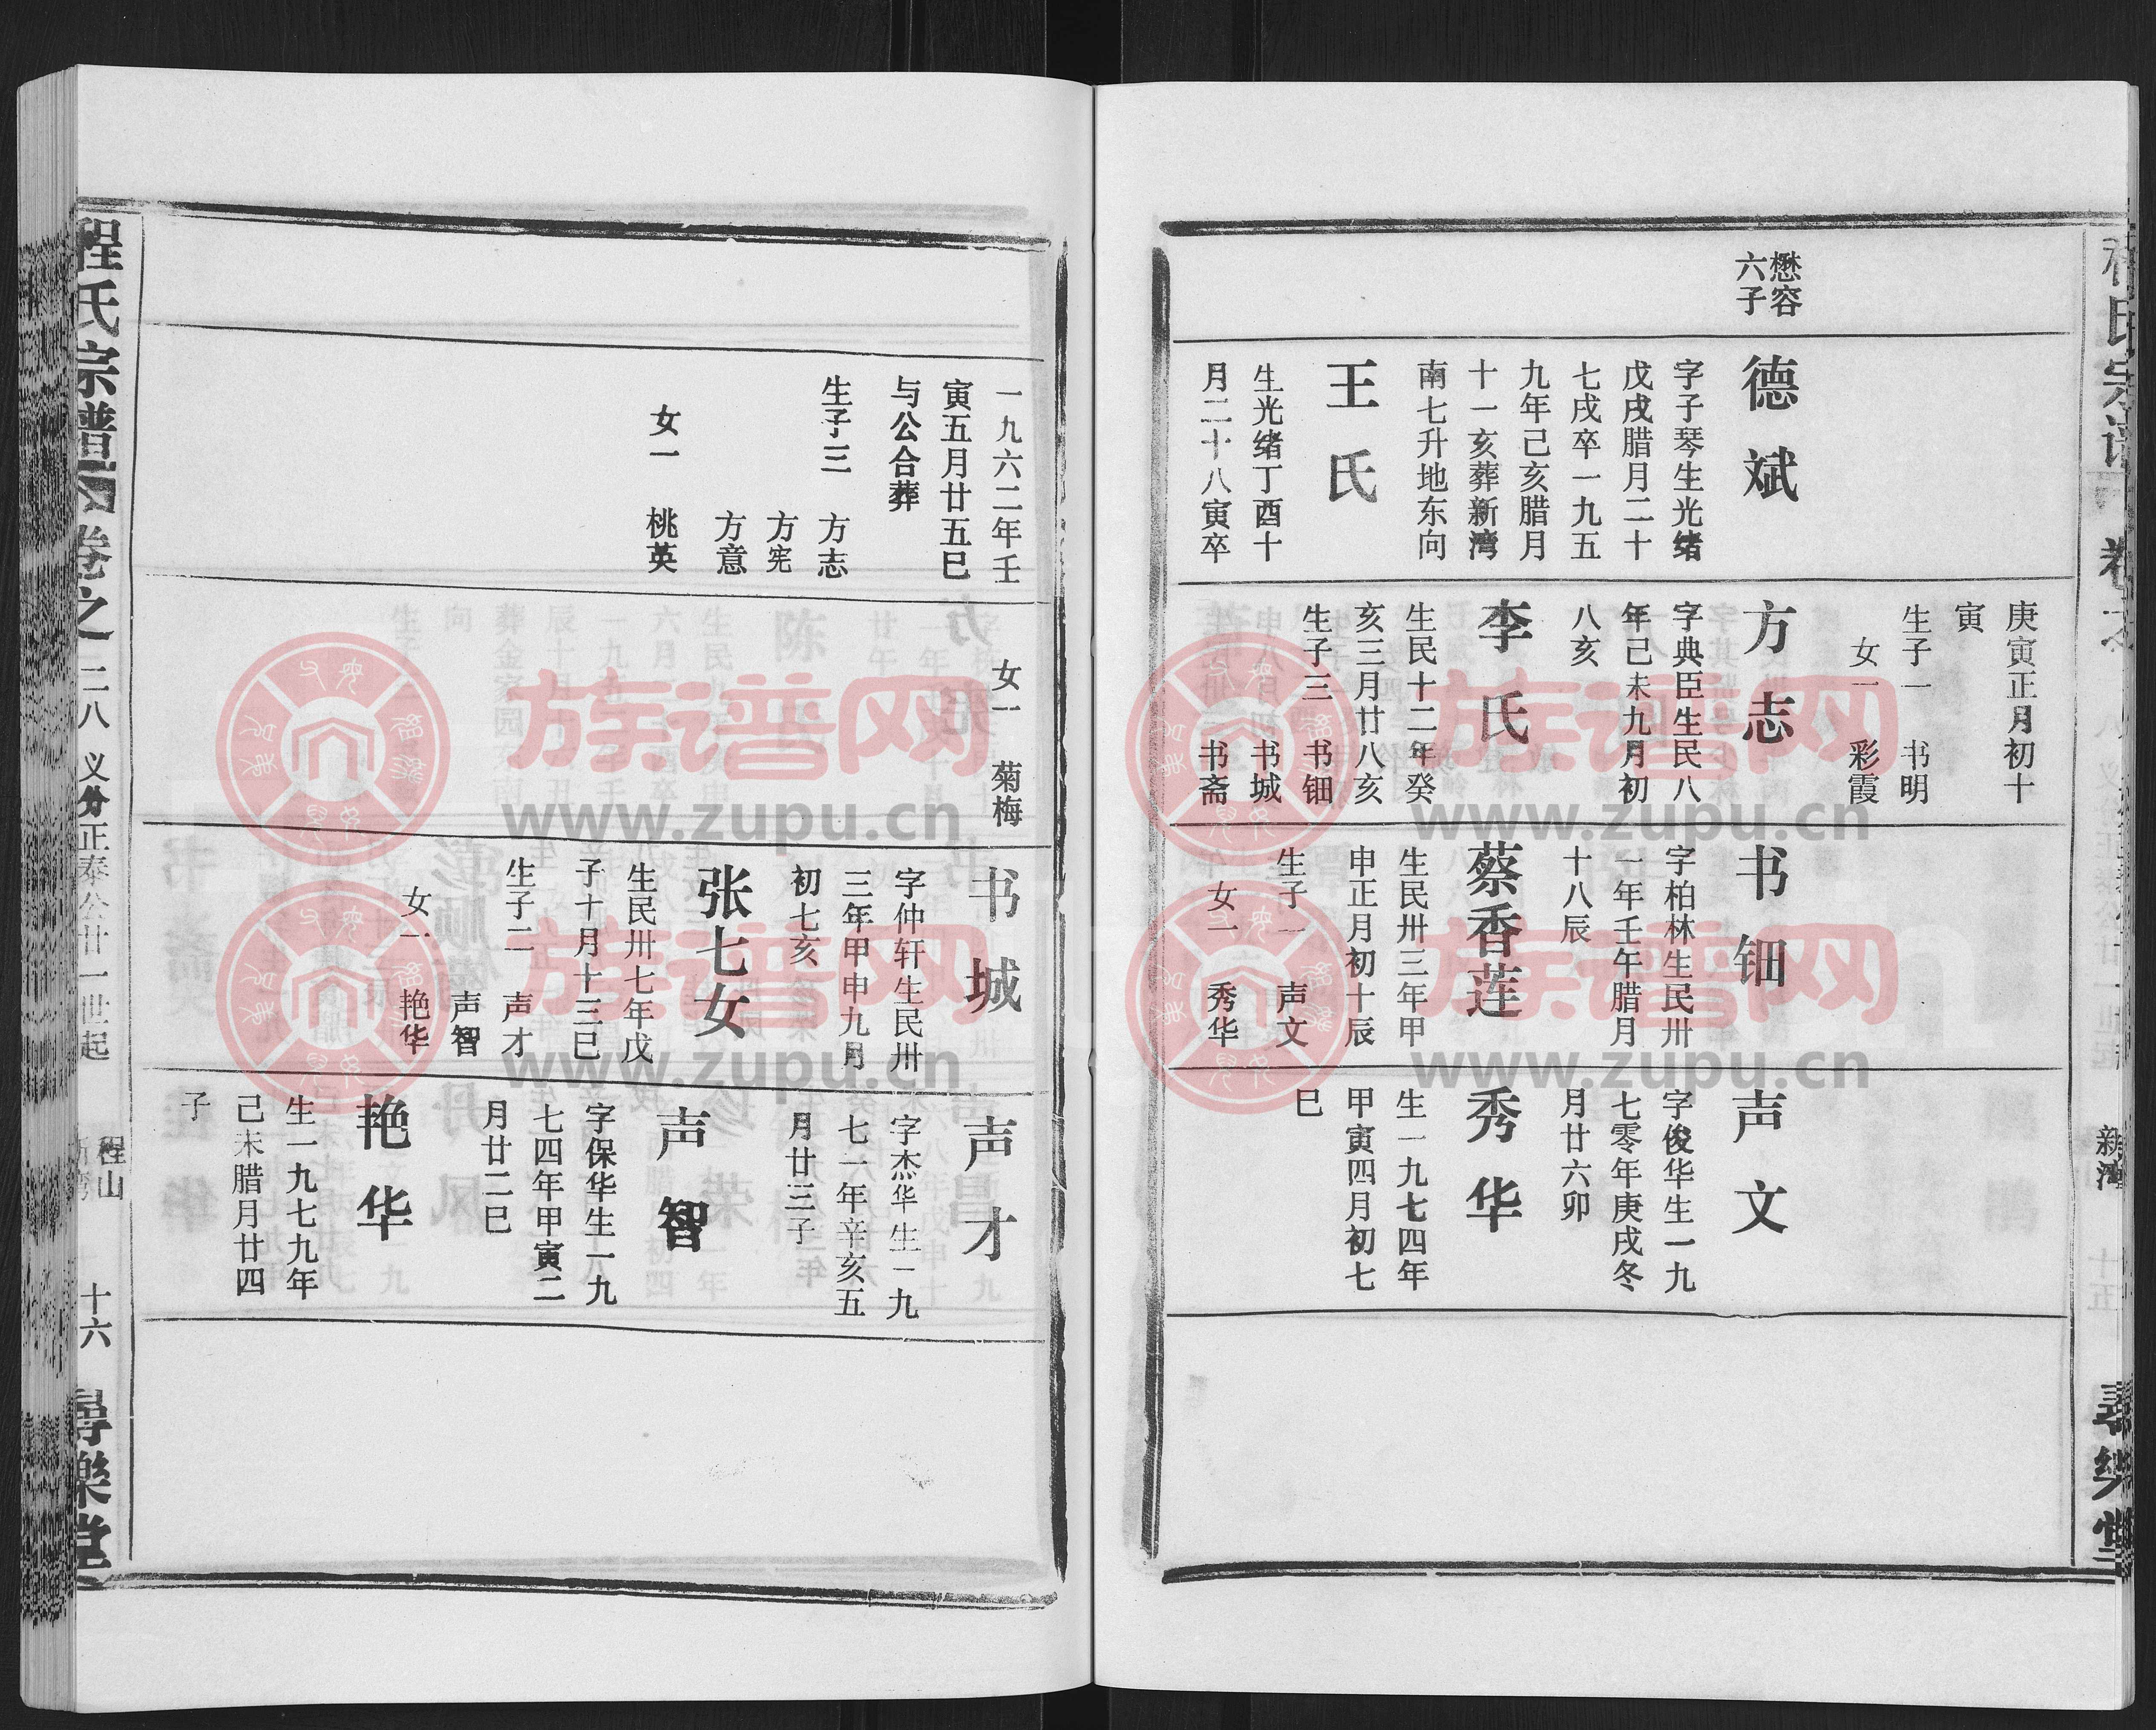 懋容
六子
德斌
字子琴生光绪
戊戌腊月二十
七戌卒一九五
九年己亥腊月
十一亥葬新湾
南七升地东向
王氏
生光绪丁酉十
月二十八寅卒
庚寅正月初十
寅
生子一 书明
女一 彩霞
方志
字典臣生民八
年己未九月初
八亥
李氏
生民十二年癸
亥三月廿八亥
生子三 书钿
书城
书斋
书钿
字柏林生民卅
一年壬午腊月
十八辰
蔡香莲
生民卅三年甲
申正月初十辰
生子一 声文
女一 秀华
声文
字俊华生一九
七零年庚戌冬
月廿六卯
秀华
生一九七四年
甲寅四月初七
巳
新湾
十五
一九六二年壬
寅五月廿五巳
与公合葬
生子三 方志
方宪
方意
女一 桃英
女一 菊梅
书城
字仲轩生民卅
三年甲申九月
初七亥
张七女
生民卅七年戊
子十月十三巳
生子二 声才
声智
女一 艳华
声才
字杰华生一九
七一年辛亥五
月廿三子
声智
字保华生一九
七四年甲寅二
月廿二巳
艳华
生一九七九年
己未腊月廿四
子
程氏宗谱 卷之二八 义分正泰公廿一世起 程山 十六 尋樂堂
族谱网
www.zupu.cn
族谱网
www.zupu.cn
族谱网
www.zupu.cn
族谱网
www.zupu.cn